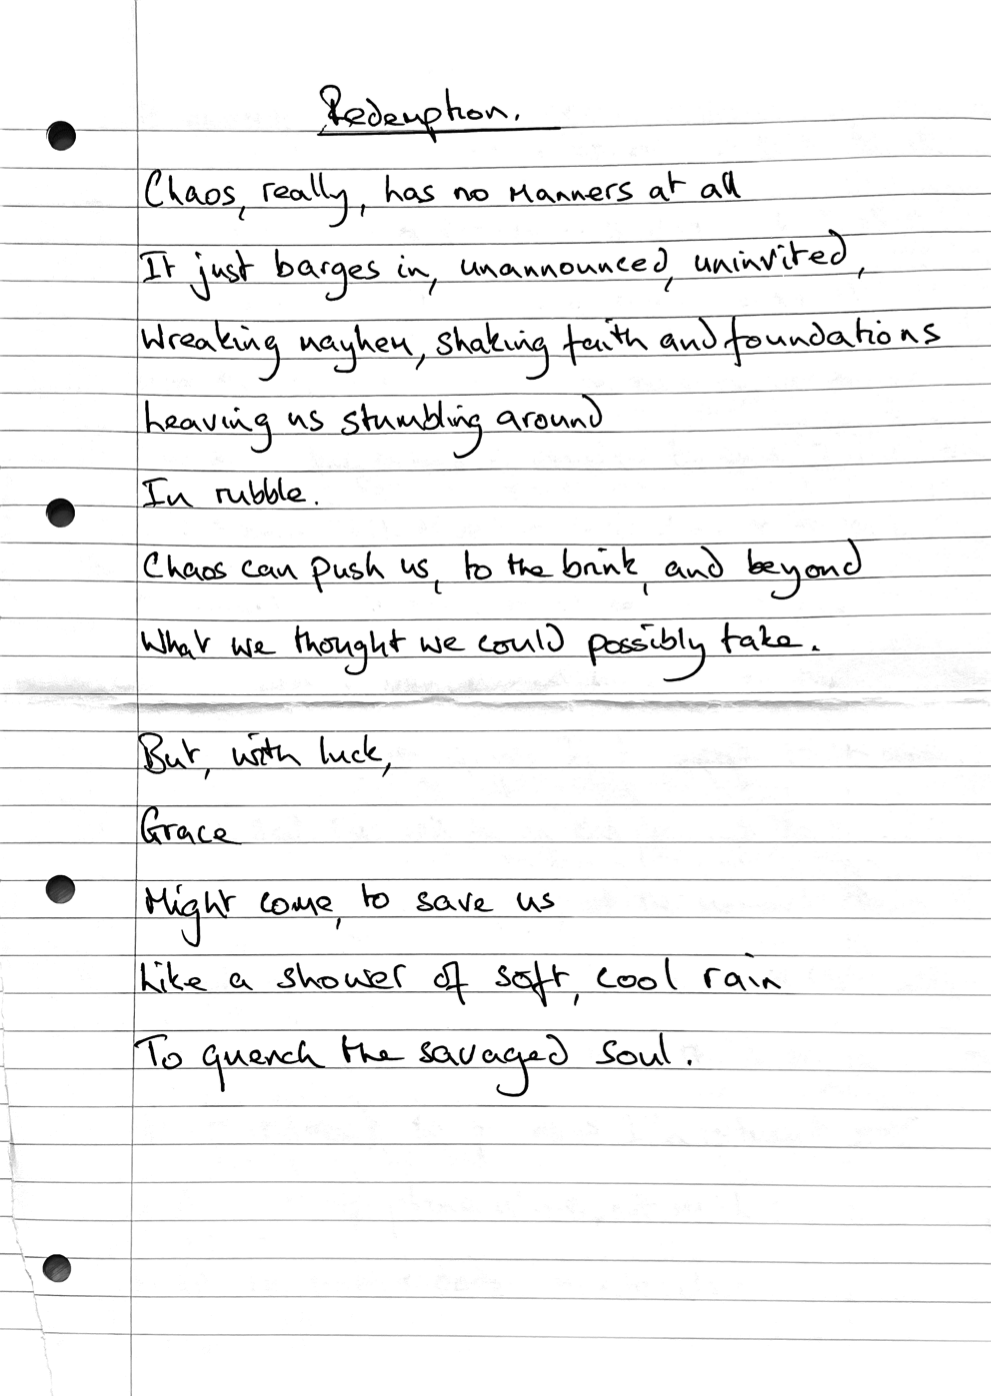 Redemption.
Chaos, really, has no manners at all
It just barges in, unannounced, uninvited,
Wreaking mayhem, shaking faith and foundations
Leaving us stumbling around
In rubble.
Chaos can push us, to the brink, and beyond
What we thought we could possibly take.
But, with luck,
Grace
Might come, to save us
Like a shower of soft, cool rain
To quench the savaged soul.